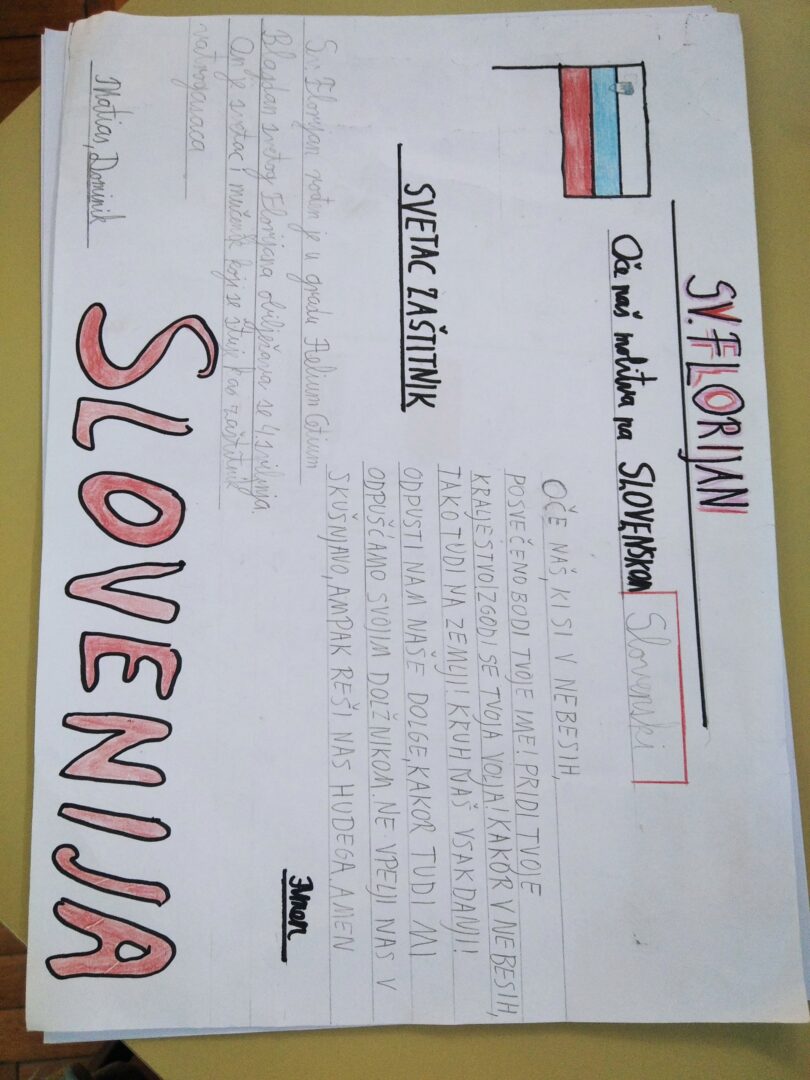 SV. FLORIJAN
Oče naš molitva na SLOVENSKOM
Slovenski
OČE NAŠ, KI SI V NEBESIH,
POSVEČENO BODI TVOJE IME! PRIDI TVOJE
KRALJESTVO! ZGODI SE TVOJA VOLJA! KAKOR V NEBESIH,
TAKO TUDI NA ZEMLJI! KRUH NAŠ VSAKDANJI!
ODPUSTI NAM NAŠE DOLGE, KAKOR TUDI MI
ODPUŠĆAMO SVOJIM DOLŽNIKOM. NE VPELJI NAS V
SKUŠNJAVO, AMPAK REŠI NAS HUDEGA. AMEN
SVETAC ZAŠTITNIK
Sv. Florijan rođen je u gradu Aelium Cetium
Blagdan svetog Florijana obilježava se 4. svibnja
On je svetac i mučenik koji se štuje kao zaštitnik
vatrogasaca
Matias, Dominik
SLOVENIJA